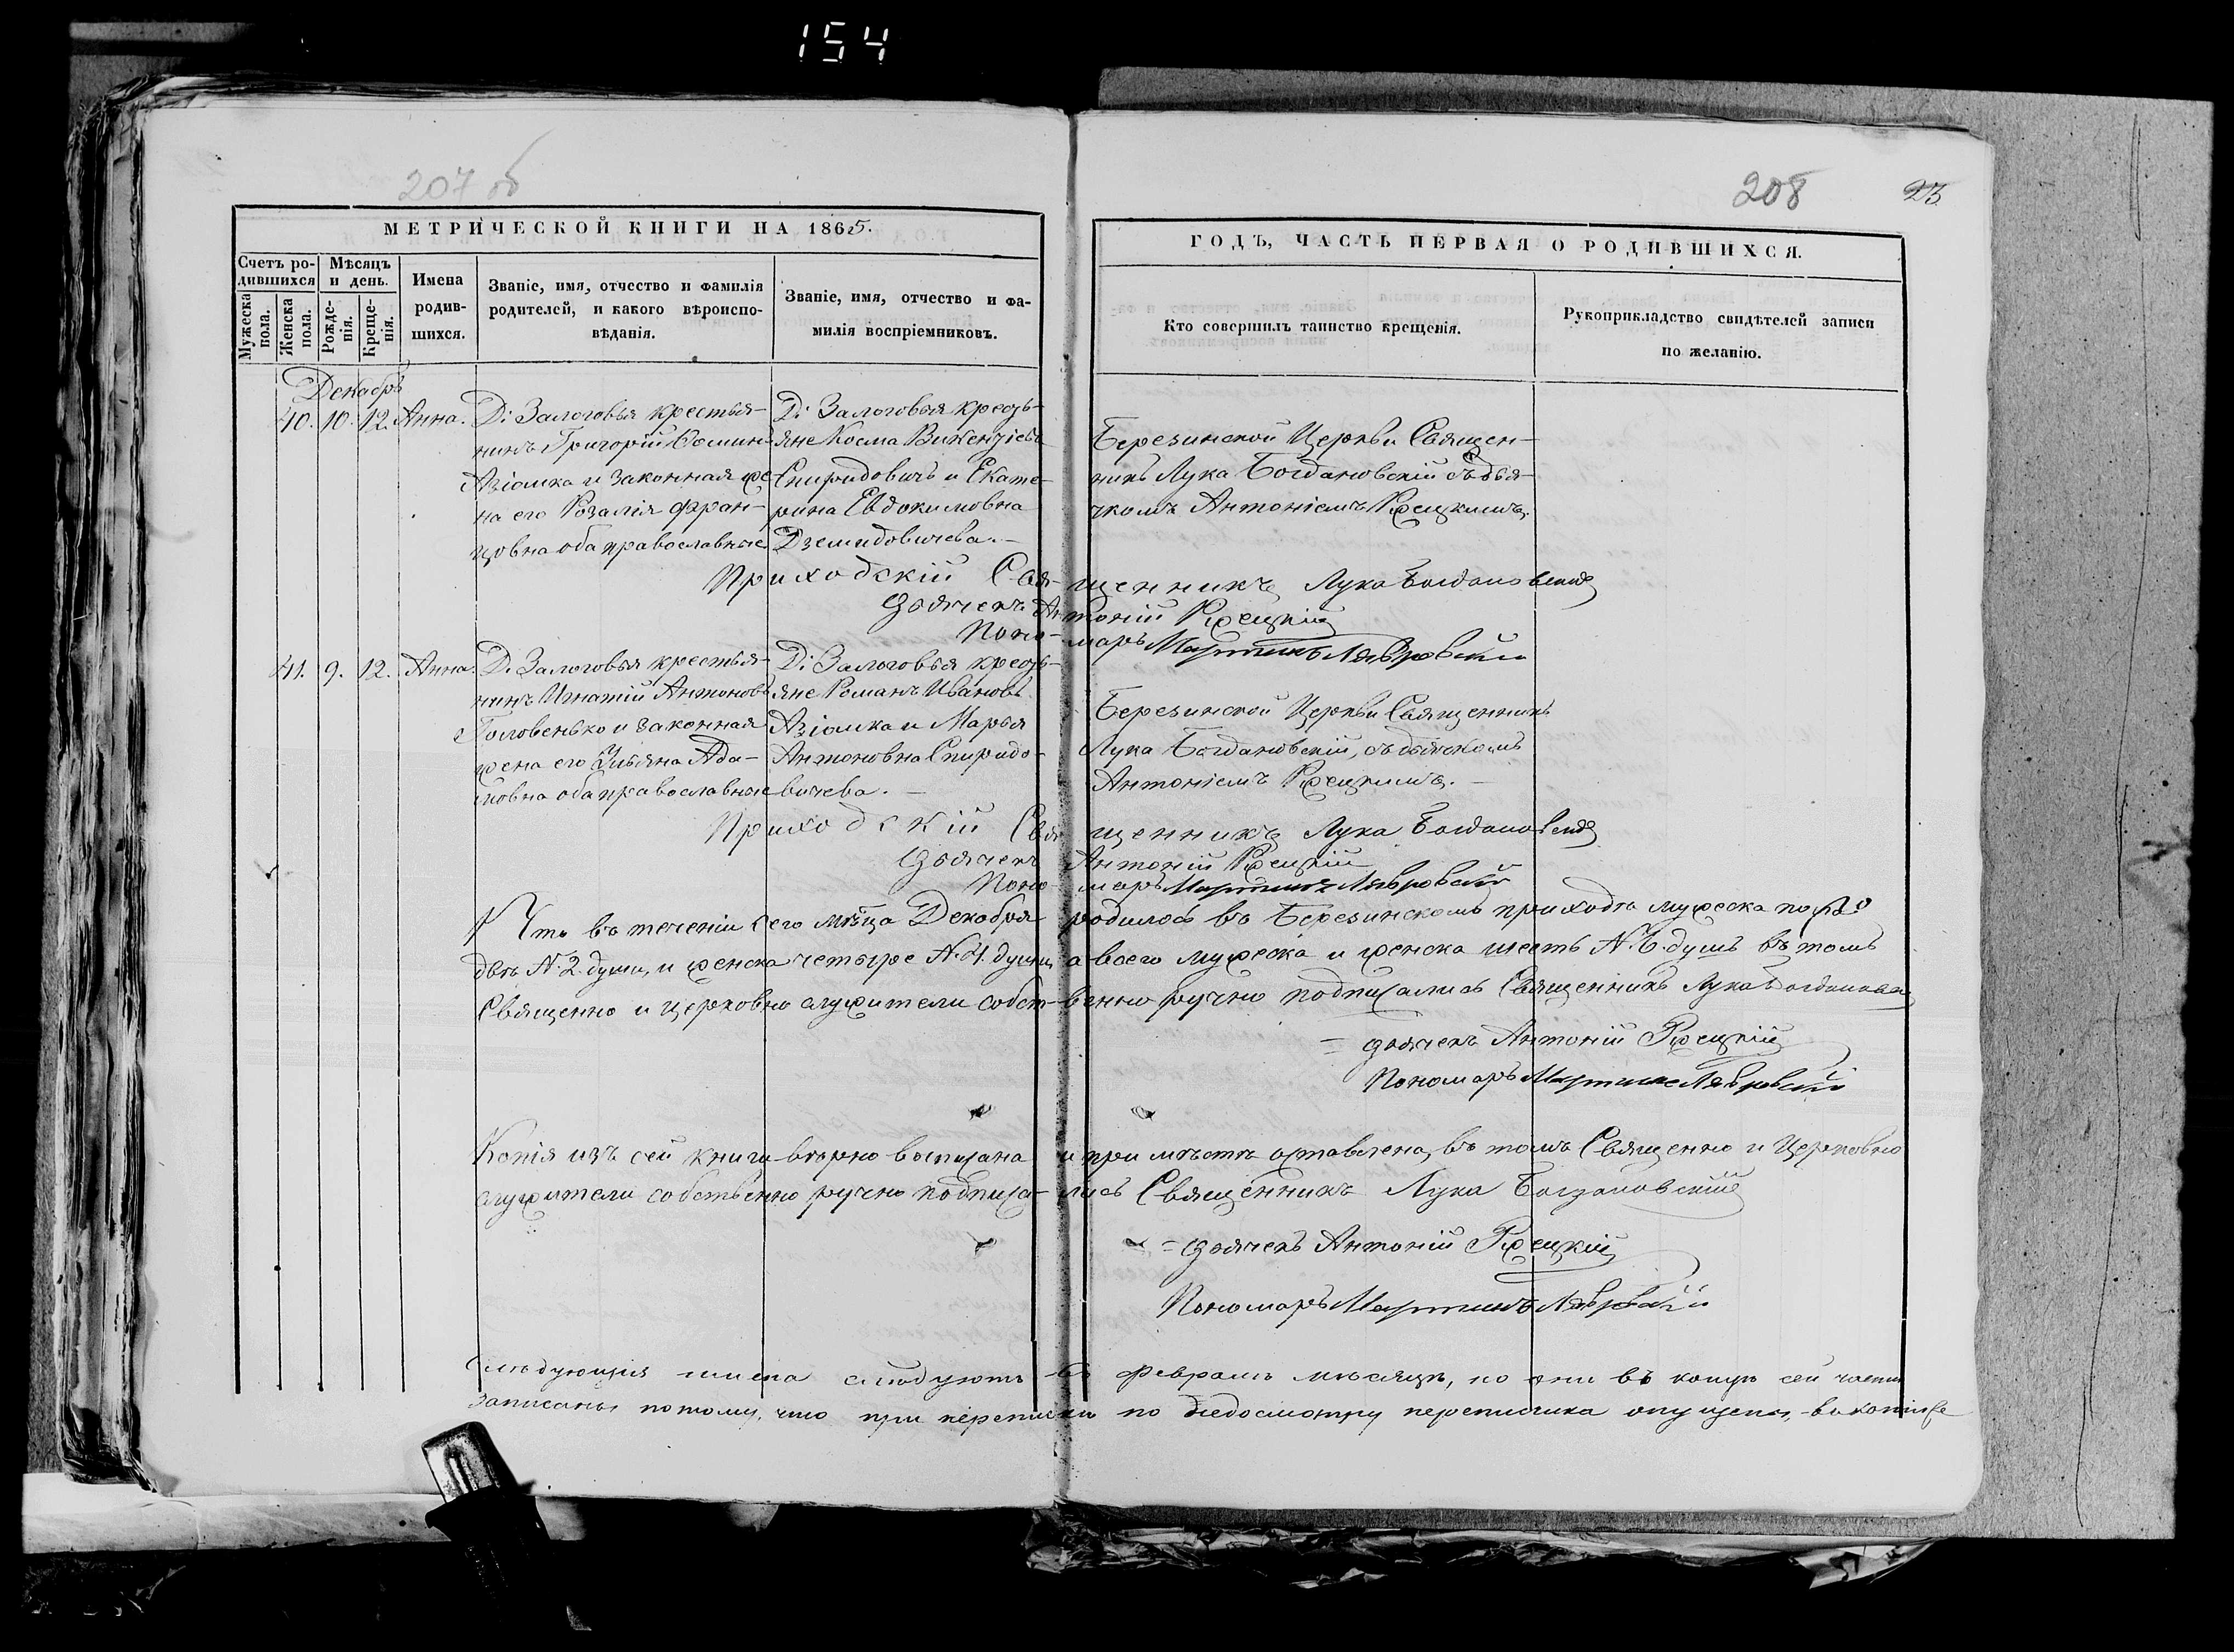 154
207 об
208
23
МЕТРИЧЕСКОЙ КНИГИ НА 1865.
Счетъ ро-
дившихся
Мѣсяцъ
и день.
Мужеска
пола.
Женска
пола.
Рожде-
нія.
Креще-
нія.
Имена
родив-
шихся.
Званіе, имя, отчество и фамилія
родителей, и какого вѣроиспо-
вѣданія.
Званіе, имя, отчество и фа-
милія воспріемниковъ.
ГОДЪ, ЧАСТЬ ПЕРВАЯ О РОДИВШИХСЯ.
Кто совершилъ таинство крещенія.
Рукоприкладство свидѣтелей записи
по желанію.
Декабрь
40. 10. 12. Анна.
Д: Залоговья крестья-
нинъ Григорій Ѳомин
Азіомка и законная же
на его Розалія Фран-
цовна оба православные
Д: Залоговья кресть-
яне Косма Викентіевъ
Спиридовичъ и Екате-
рина Евдокимовна
Дземидовичева.
Березинской Церкви Священ-
никъ Лука Богдановскій съ дья-
чкомъ Антоніемъ Ржецкимъ.
Приходскій Священникъ Лука Богдановскій
Дьячекъ Антоній Ржецкій
Пономарь Мартинъ Лавровскій
41. 9. 12. Анна.
Д. Залоговья крестья-
нинъ Игнатій Антоновъ
Головенько и законная
жена его Ульяна Ада-
мовна оба православные
Д: Залоговья кресть-
яне Романъ Ивановъ
Азіомка и Марья
Антоновна Спиридо-
вичева.
Березинской Церкви Священникъ
Лука Богдановскій, съ дьячкомъ
Антоніемъ Ржецкимъ.
Приходскій Священникъ Лука Богдановскій
Дьячекъ Антоній Ржецкій
Пономарь Мартинъ Лавровскій
Что въ теченіи сего мѣсца Декабря родилось въ Березинскомъ приходѣ мужеска полу
двѣ N. 2. души, и женска четыре N. 4. души, а всего мужеска и женска шесть N. 6. душъ въ томъ
Священно и церковно служители собст-венно ручно подписались Священникъ Лука Богдановскій
= Дьячекъ Антоній Ржецкій
Пономарь Мартинъ Лавровскій
Копія изъ сей книги вѣрно восписана и при мѣстѣ оставлена, въ томъ Священно и Церковно
служители собственно ручно подписа-лись Священникъ Лука Богдановскій
= Дьячекъ Антоній Ржецкій
Пономарь Мартинъ Лавровскій
Слѣдующія имена слѣдуютъ въ Февралѣ мѣсяцѣ, но они въ концѣ сей части
записаны потому, что при перепискѣ по недосмотру переписчика опущены, въ копіи же